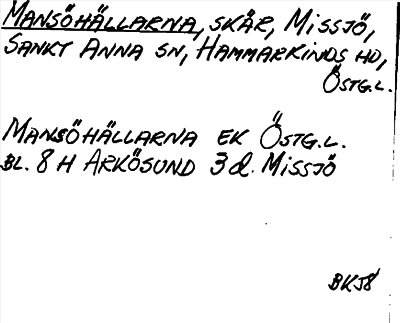 MANSÖHÄLLARNA, SKÄR, MISSJÖ,
SANKT ANNA SN, HAMMARKINDS HD,
ÖSTG.L.
MANSÖHÄLLARNA EK ÖSTG.L.
BL. 8 H ARKÖSUND 3 d. MISSJÖ
BKJ8